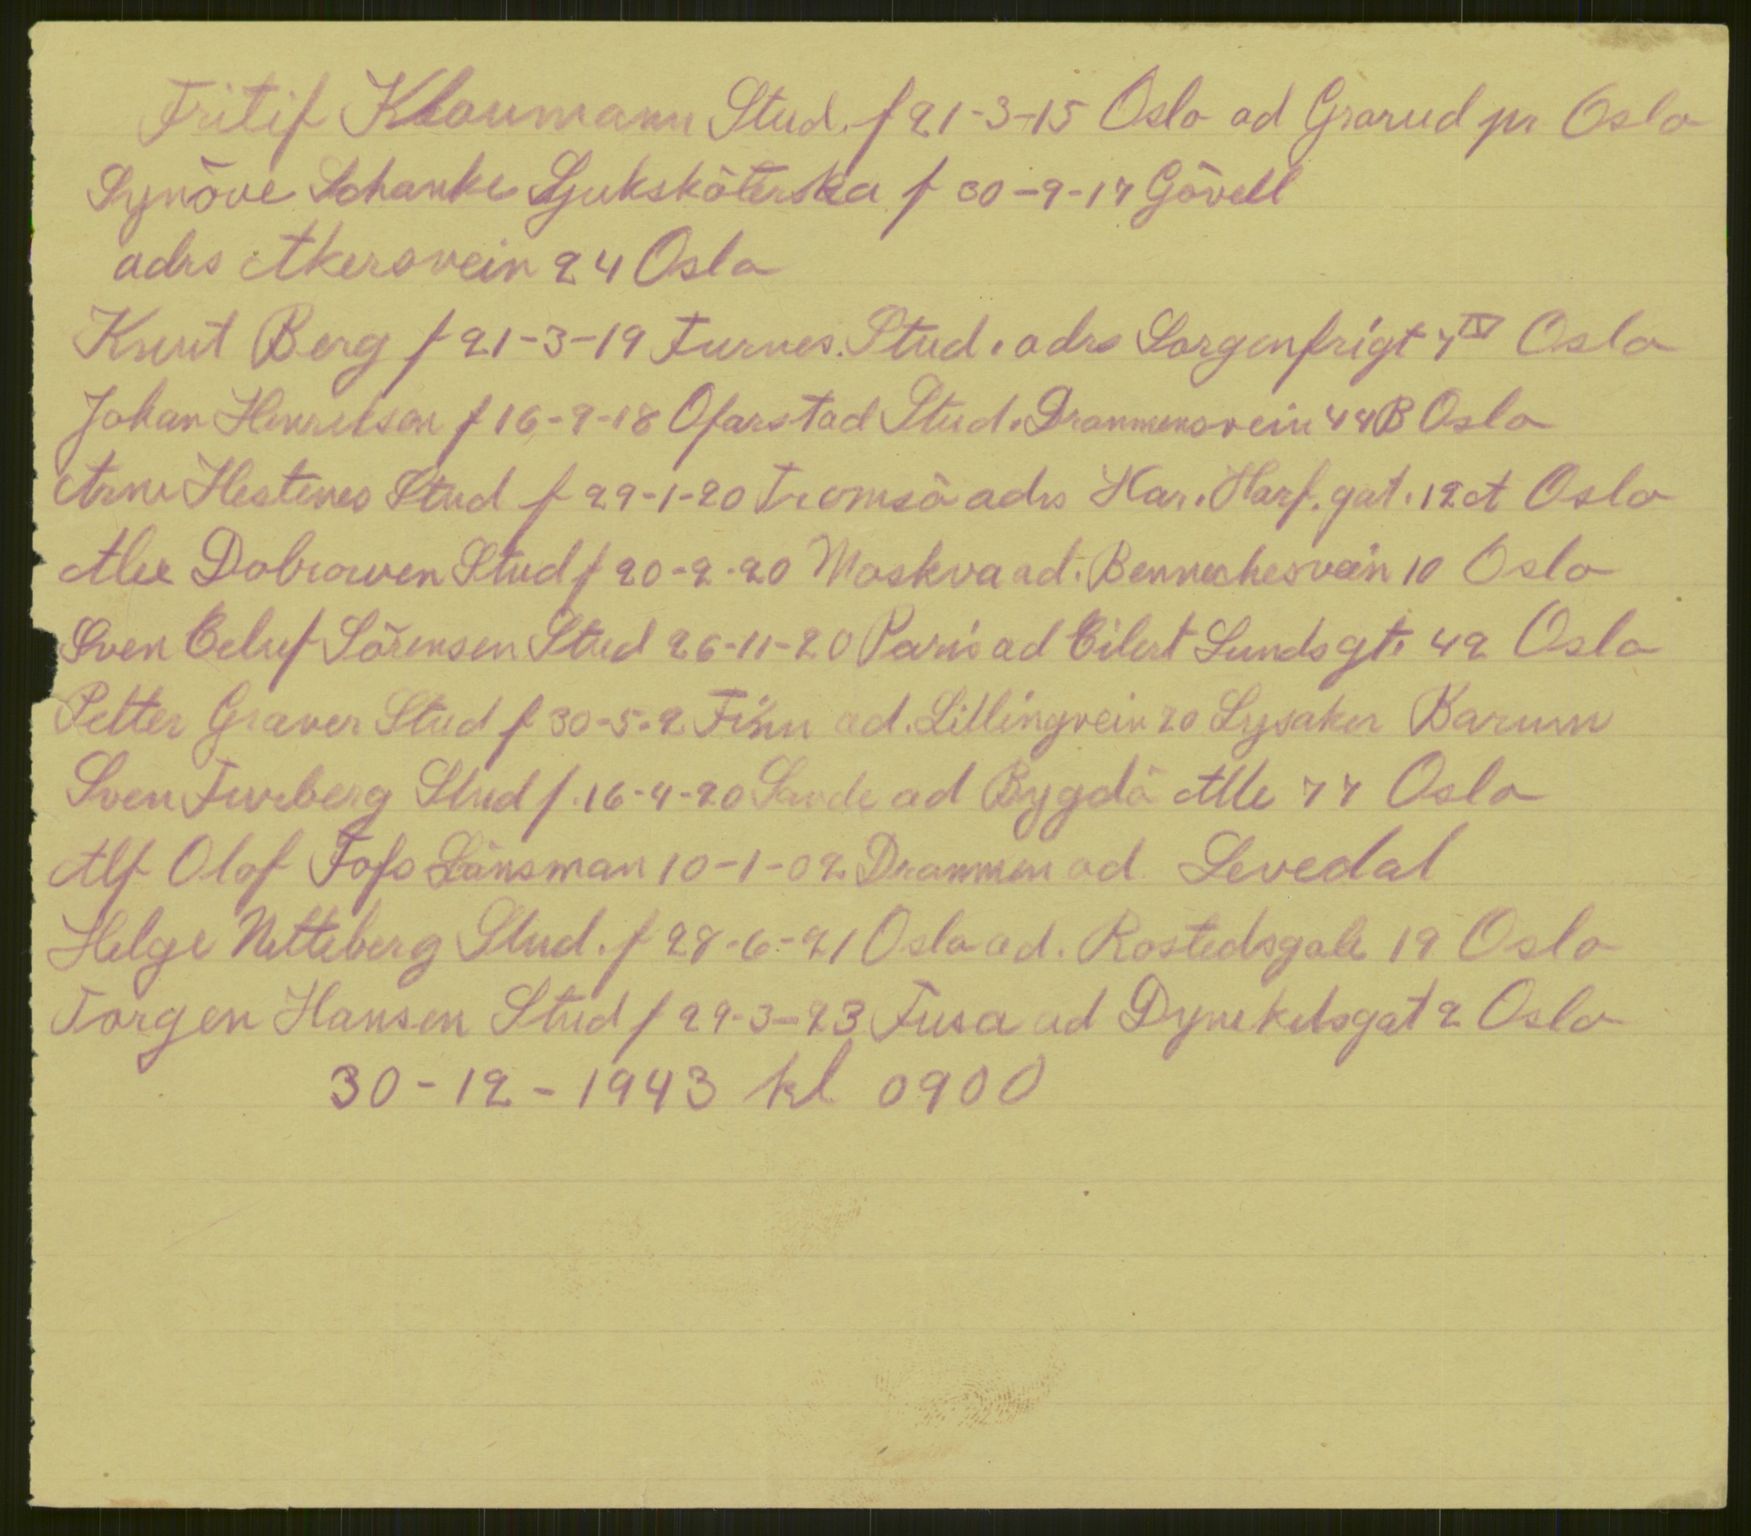 Fritif Klaumann Stud. f 21-3-15 Oslo ad Grorud pr Oslo
Synöve Schanke Sjuksköterska f 30-9-17 Gövell
adrs Akersvein 24 Oslo
Knut Berg f 21-3-19 Furnes. Stud. adrs Sorgenfrigt 7 IV Oslo
Johan Henriksen f 16-9-18 Ofarstad Stud. Drammensvein 44B Oslo
Arne Hestenes Stud f 29-1-20 Tromsö adrs Har. Harf. gat. 12A Oslo
Alex Dobrowen Stud f 20-2-20 Moskva ad. Bennechesvein 10 Oslo
Sven Oeluf Sörensen Stud 26-11-20 Paris ad Eilert Sundsgt. 42 Oslo
Petter Graver Stud f 30-5-2 Finn ad. Lillingvein 20 Lysaker Barum
Sven Furberg Stud f. 16-4-20 Sande ad Bygdö Alle 77 Oslo
Alf Olof Fofs Länsman 10-1-02 Drammen ad Levedal
Helge Netteberg Stud. f 28-6-21 Oslo ad. Rostedsgate 19 Oslo
Torgen Hansen Stud f 29-3-23 Fusa ad Dynekelsgat 2 Oslo
30-12-1943 kl 0900